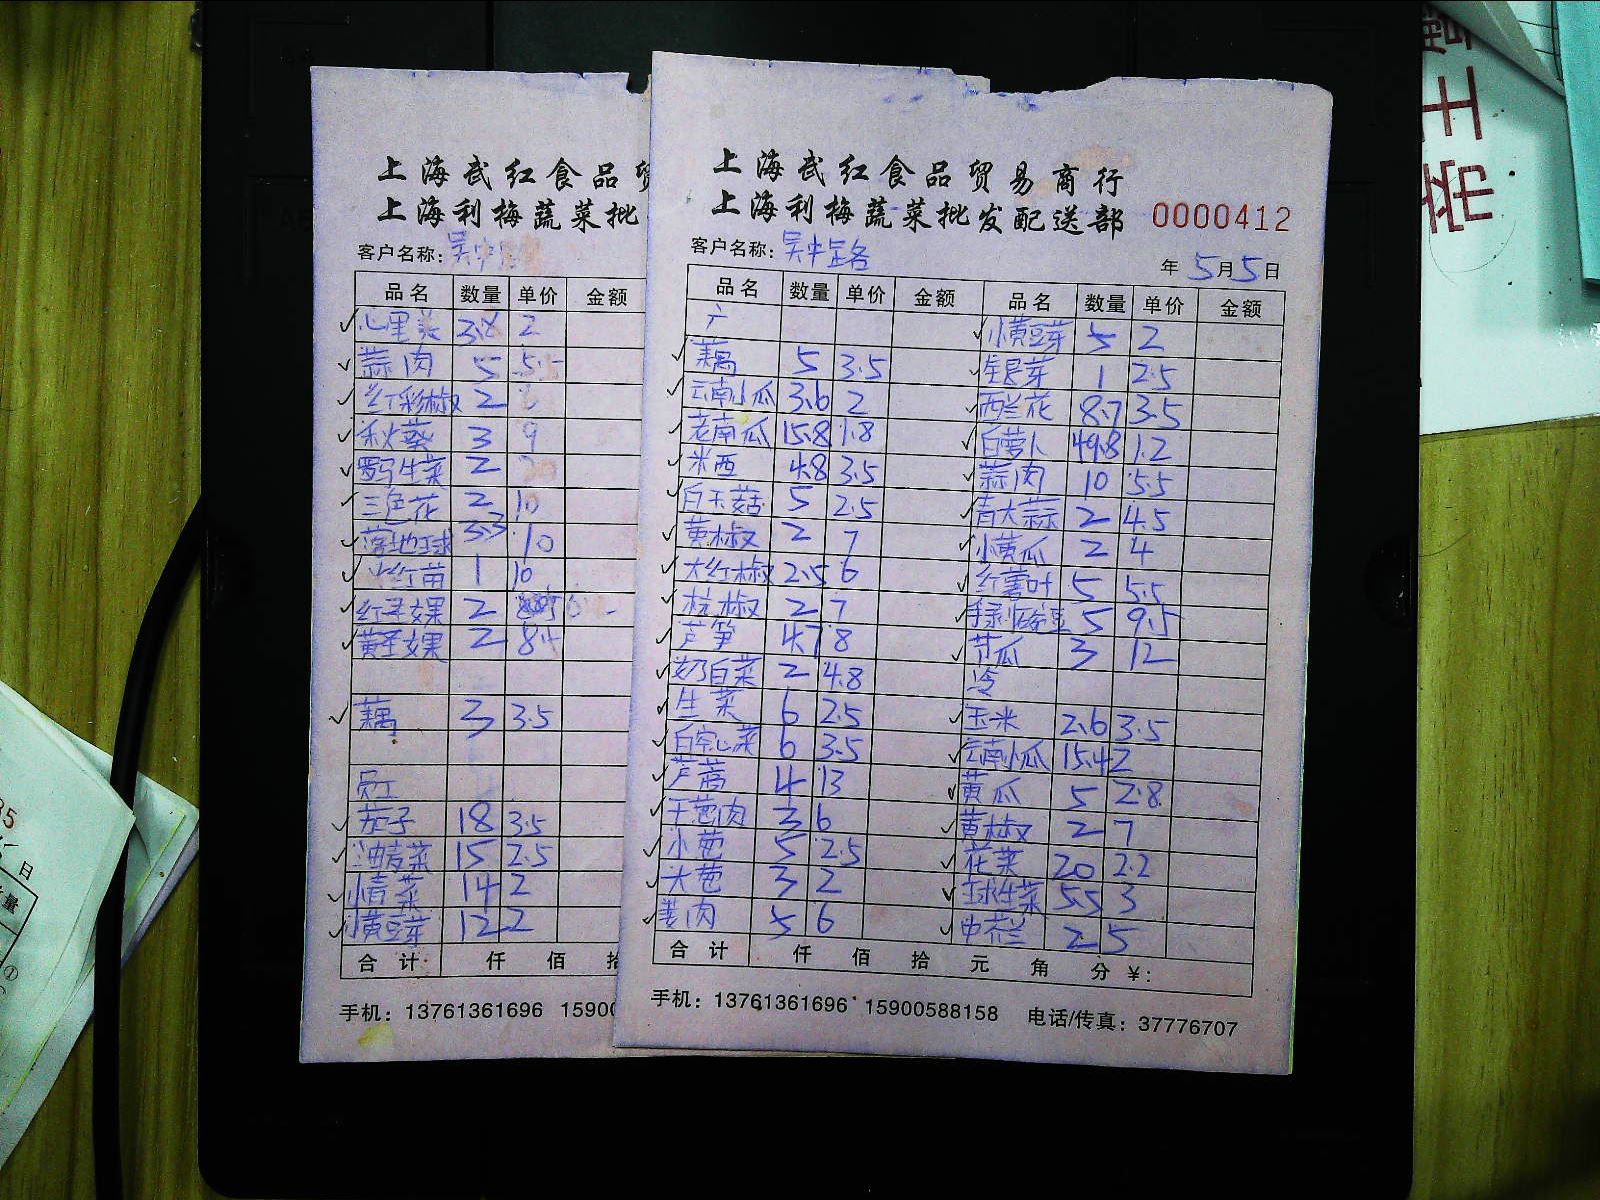 上海武红食品贸
上海利梅蔬菜批
客户名称：吴中
品名 数量 单价 金额
心里美 3.8 2
蒜肉 5 5.5
红彩椒 2
秋葵 3 9
罗马生菜 2
三色花 2 10
落地球 3.3 10
红苗 1 10
红圣女果 2
黄圣女果 2 8.4
藕 3 3.5
员工
茄子 18 3.5
油麦菜 15 2.5
小青菜 14 2
小黄豆芽 12 2
合计 仟 佰 拾
手机：13761361696 15900
上海武红食品贸易商行
上海利梅蔬菜批发配送部 0000412
客户名称：吴中路
年 5月5日
品名 数量 单价 金额 品名 数量 单价 金额
小黄豆芽 5 2
藕 5 3.5 芽 1 2.5
云南小瓜 3.6 2 西兰花 8.7 3.5
老南瓜 15.8 1.8 白萝卜 49.8 1.2
米西 4.8 3.5 蒜肉 10 5.5
白玉菇 5 2.5 青大蒜 2 4.5
黄椒 2 7 小黄瓜 2 4
大红椒 2.5 6 红薯叶 5 5.5
杭椒 2 7 手剥豌豆 5 9.5
芦笋 4.7 8 节瓜 3 12
奶白菜 2 4.8 冷
生菜 6 2.5 玉米 2.6 3.5
白空心菜 6 3.5 云南小瓜 15.4 2
芦蒿 4 13 黄瓜 5 2.8
干葱肉 3 6 黄椒 2 7
小葱 5 2.5 花菜 20 2.2
大葱 3 2 球生菜 5.5 3
姜肉 5 6 中芥兰 2 5
合计 仟 佰 拾 元 角 分 ￥：
手机：13761361696 15900588158 电话/传真：37776707
帝王
日
量